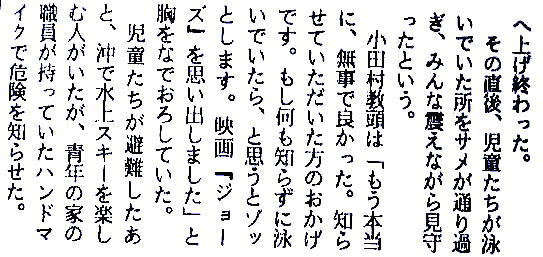 へ上げ終わった。
その直後、児童たちが泳
いでいた所をサメが通り過
ぎ、みんな震えながら見守
ったという。
小田村教頭は「もう本当
に、無事で良かった。知ら
せていただいた方のおかげ
です。もし何も知らずに泳
いでいたら、と思うとゾッ
とします。映画『ジョー
ズ』を思い出しました」と
胸をなでおろしていた。
児童たちが避難したあ
と、沖で水上スキーを楽し
む人がいたが、青年の家の
職員が持っていたハンドマ
イクで危険を知らせた。